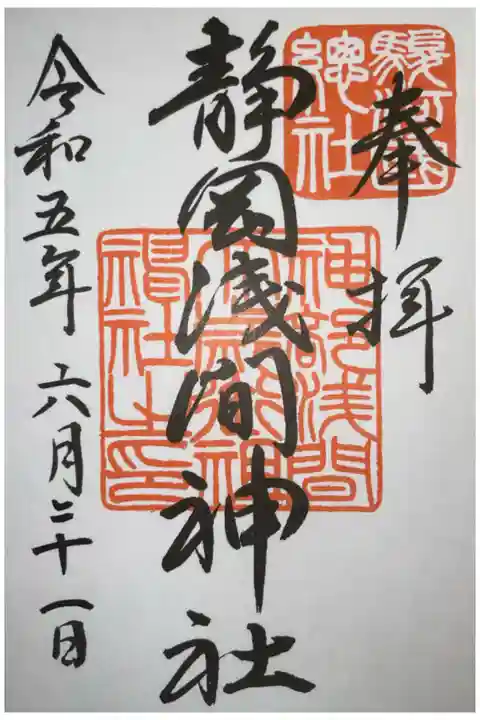 奉拝
駿河國
總社
静岡浅間神社
神部浅間
大歳御祖神
社之印
令和五年六月二十一日